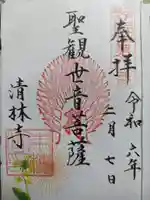 奉拝
令和六年
二月七日
聖観世音菩薩
清林寺